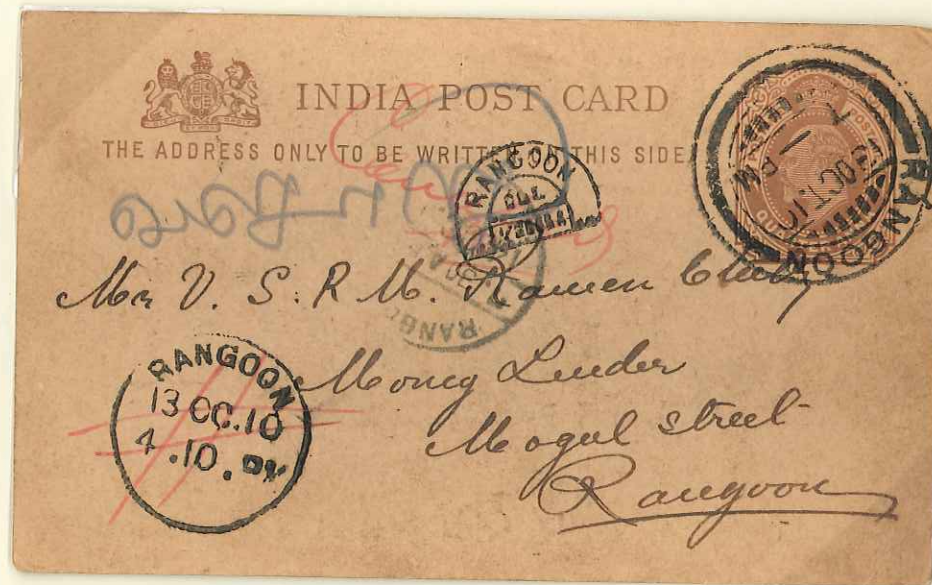 INDIA POST CARD
THE ADDRESS ONLY TO BE WRITTEN ON THIS SIDE
RANGOON
RANGOON
Mr V. S. R. M. Ramen Chetty
Money Lender
Mogul street
Rangoon
RANGOON
13 OC.10
4.10.PM